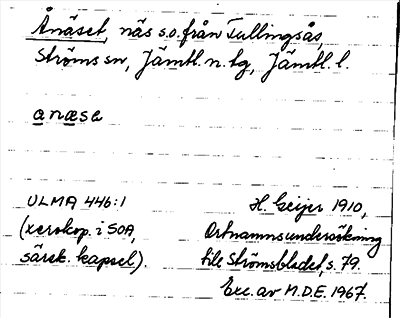 Ånäset, näs s.o. från Tullingsås,
Ströms sn, Jämtl. n. tg, Jämtl. l.
anæse
ULMA 446:1
(xerokop. i SOA,
särsk. kapsel).
H. Geijer 1910,
Ortnamnsundersökning
till Strömsbladet, s. 79.
Exc. av M.D.E. 1967.